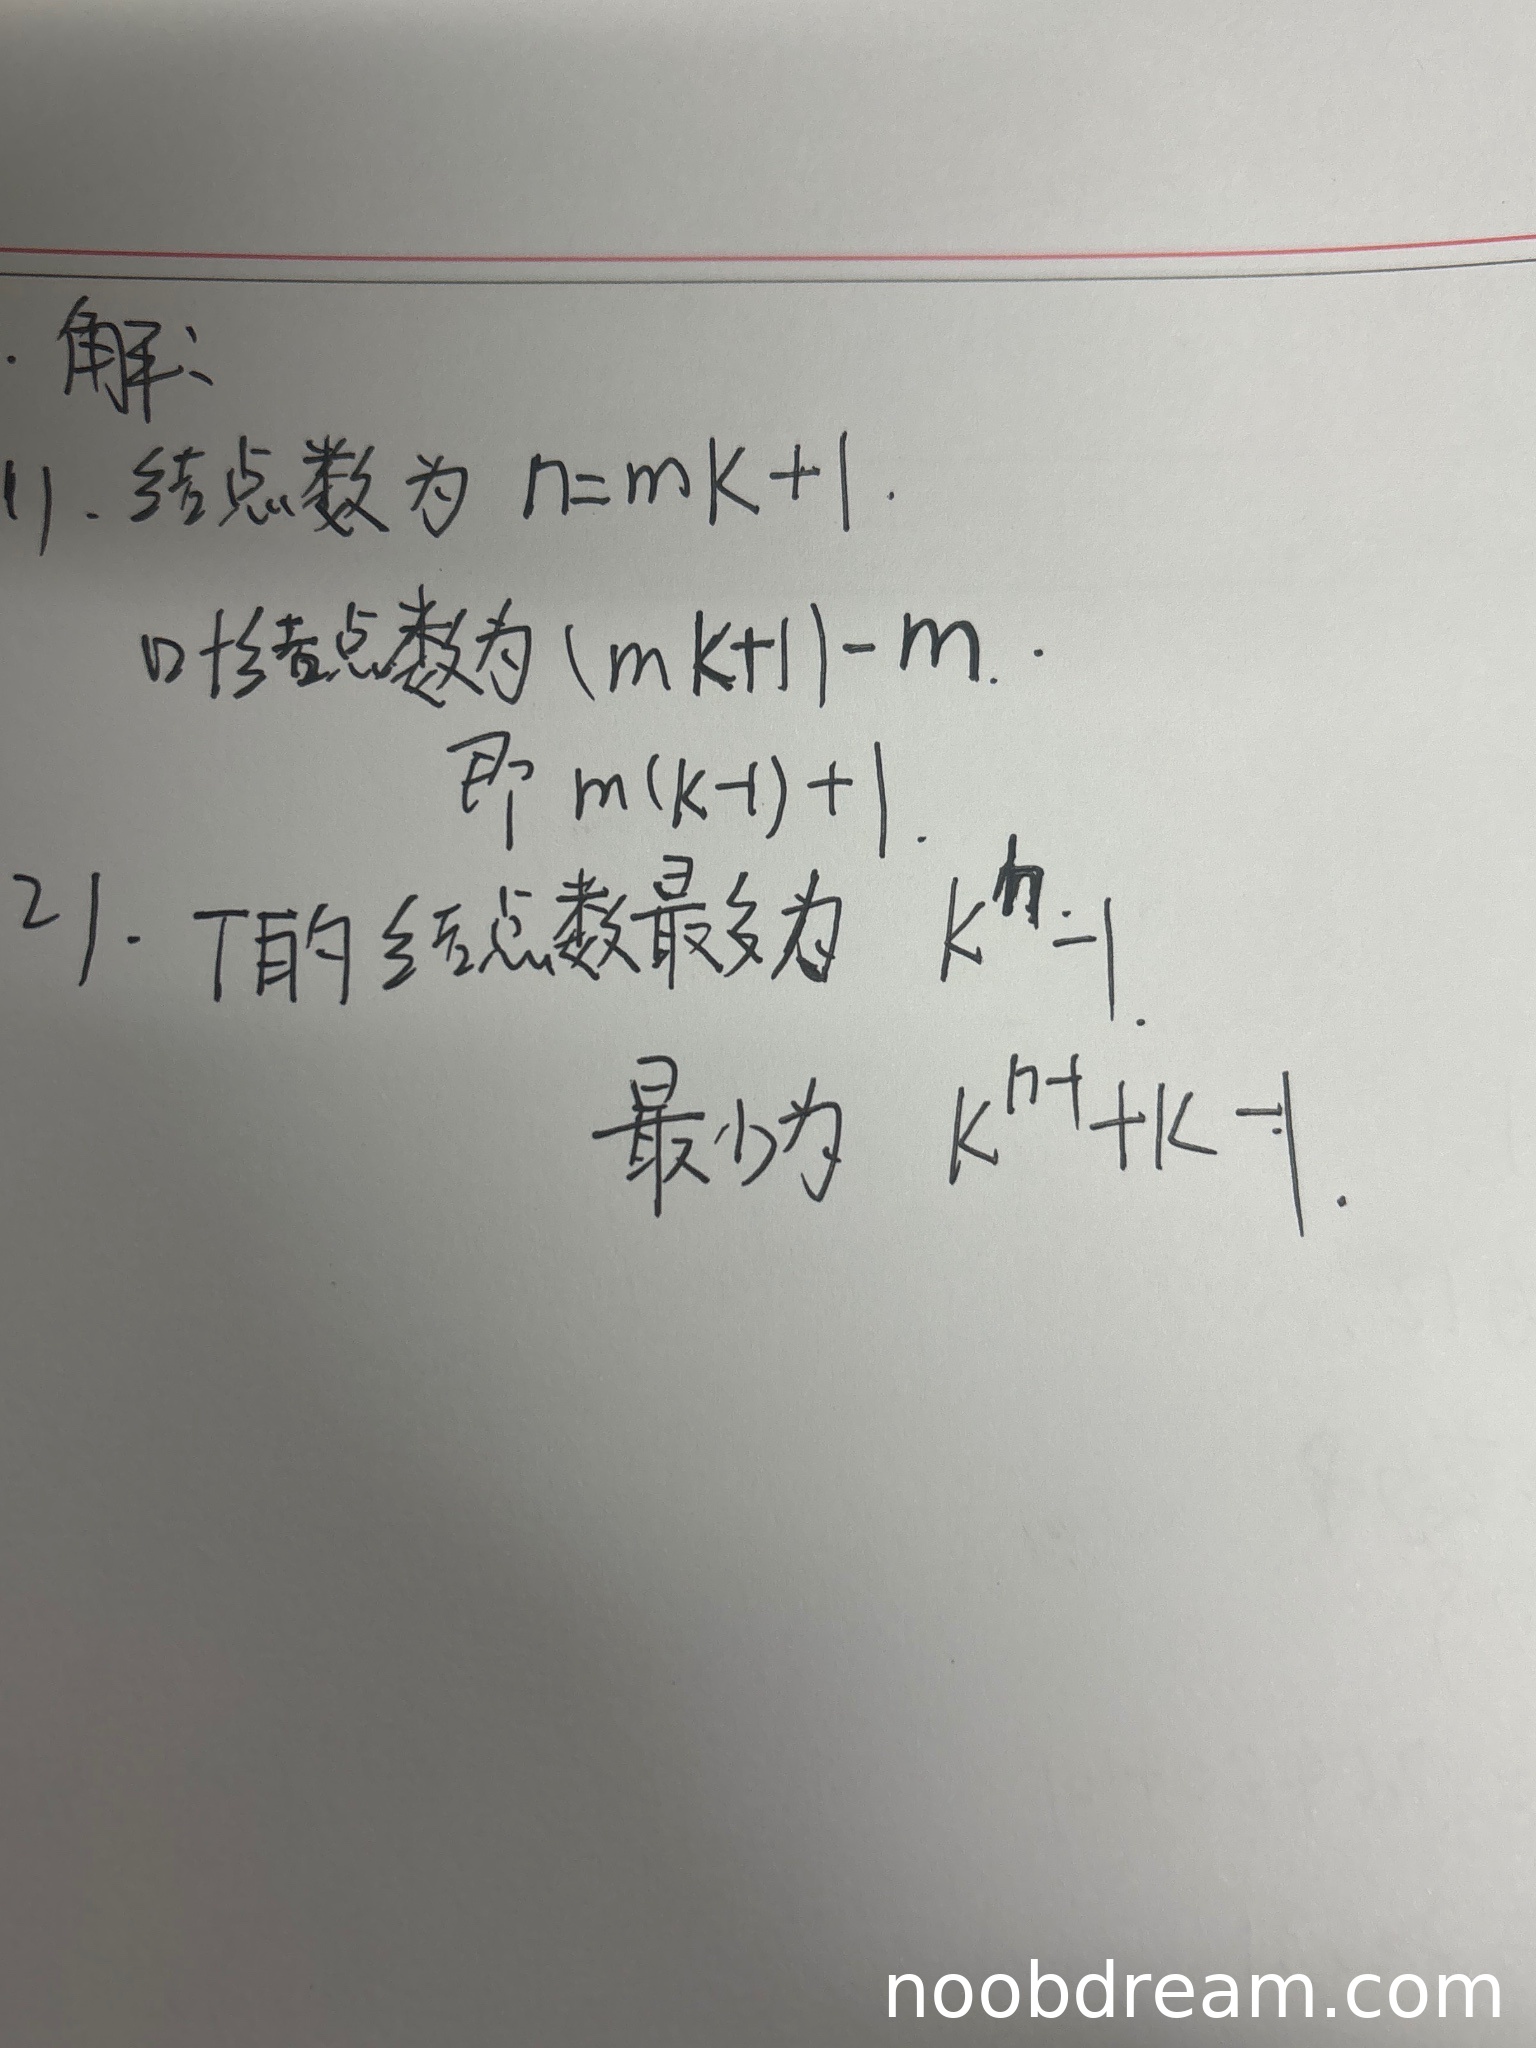 . 解:
1). 结点数为 n=mk+1.
叶结点数为(mk+1)-m.
即 m(k-1)+1.
2). T的结点数最多为 k^n-1.
最少为 k^{n-1}+k-1.
noobdream.com